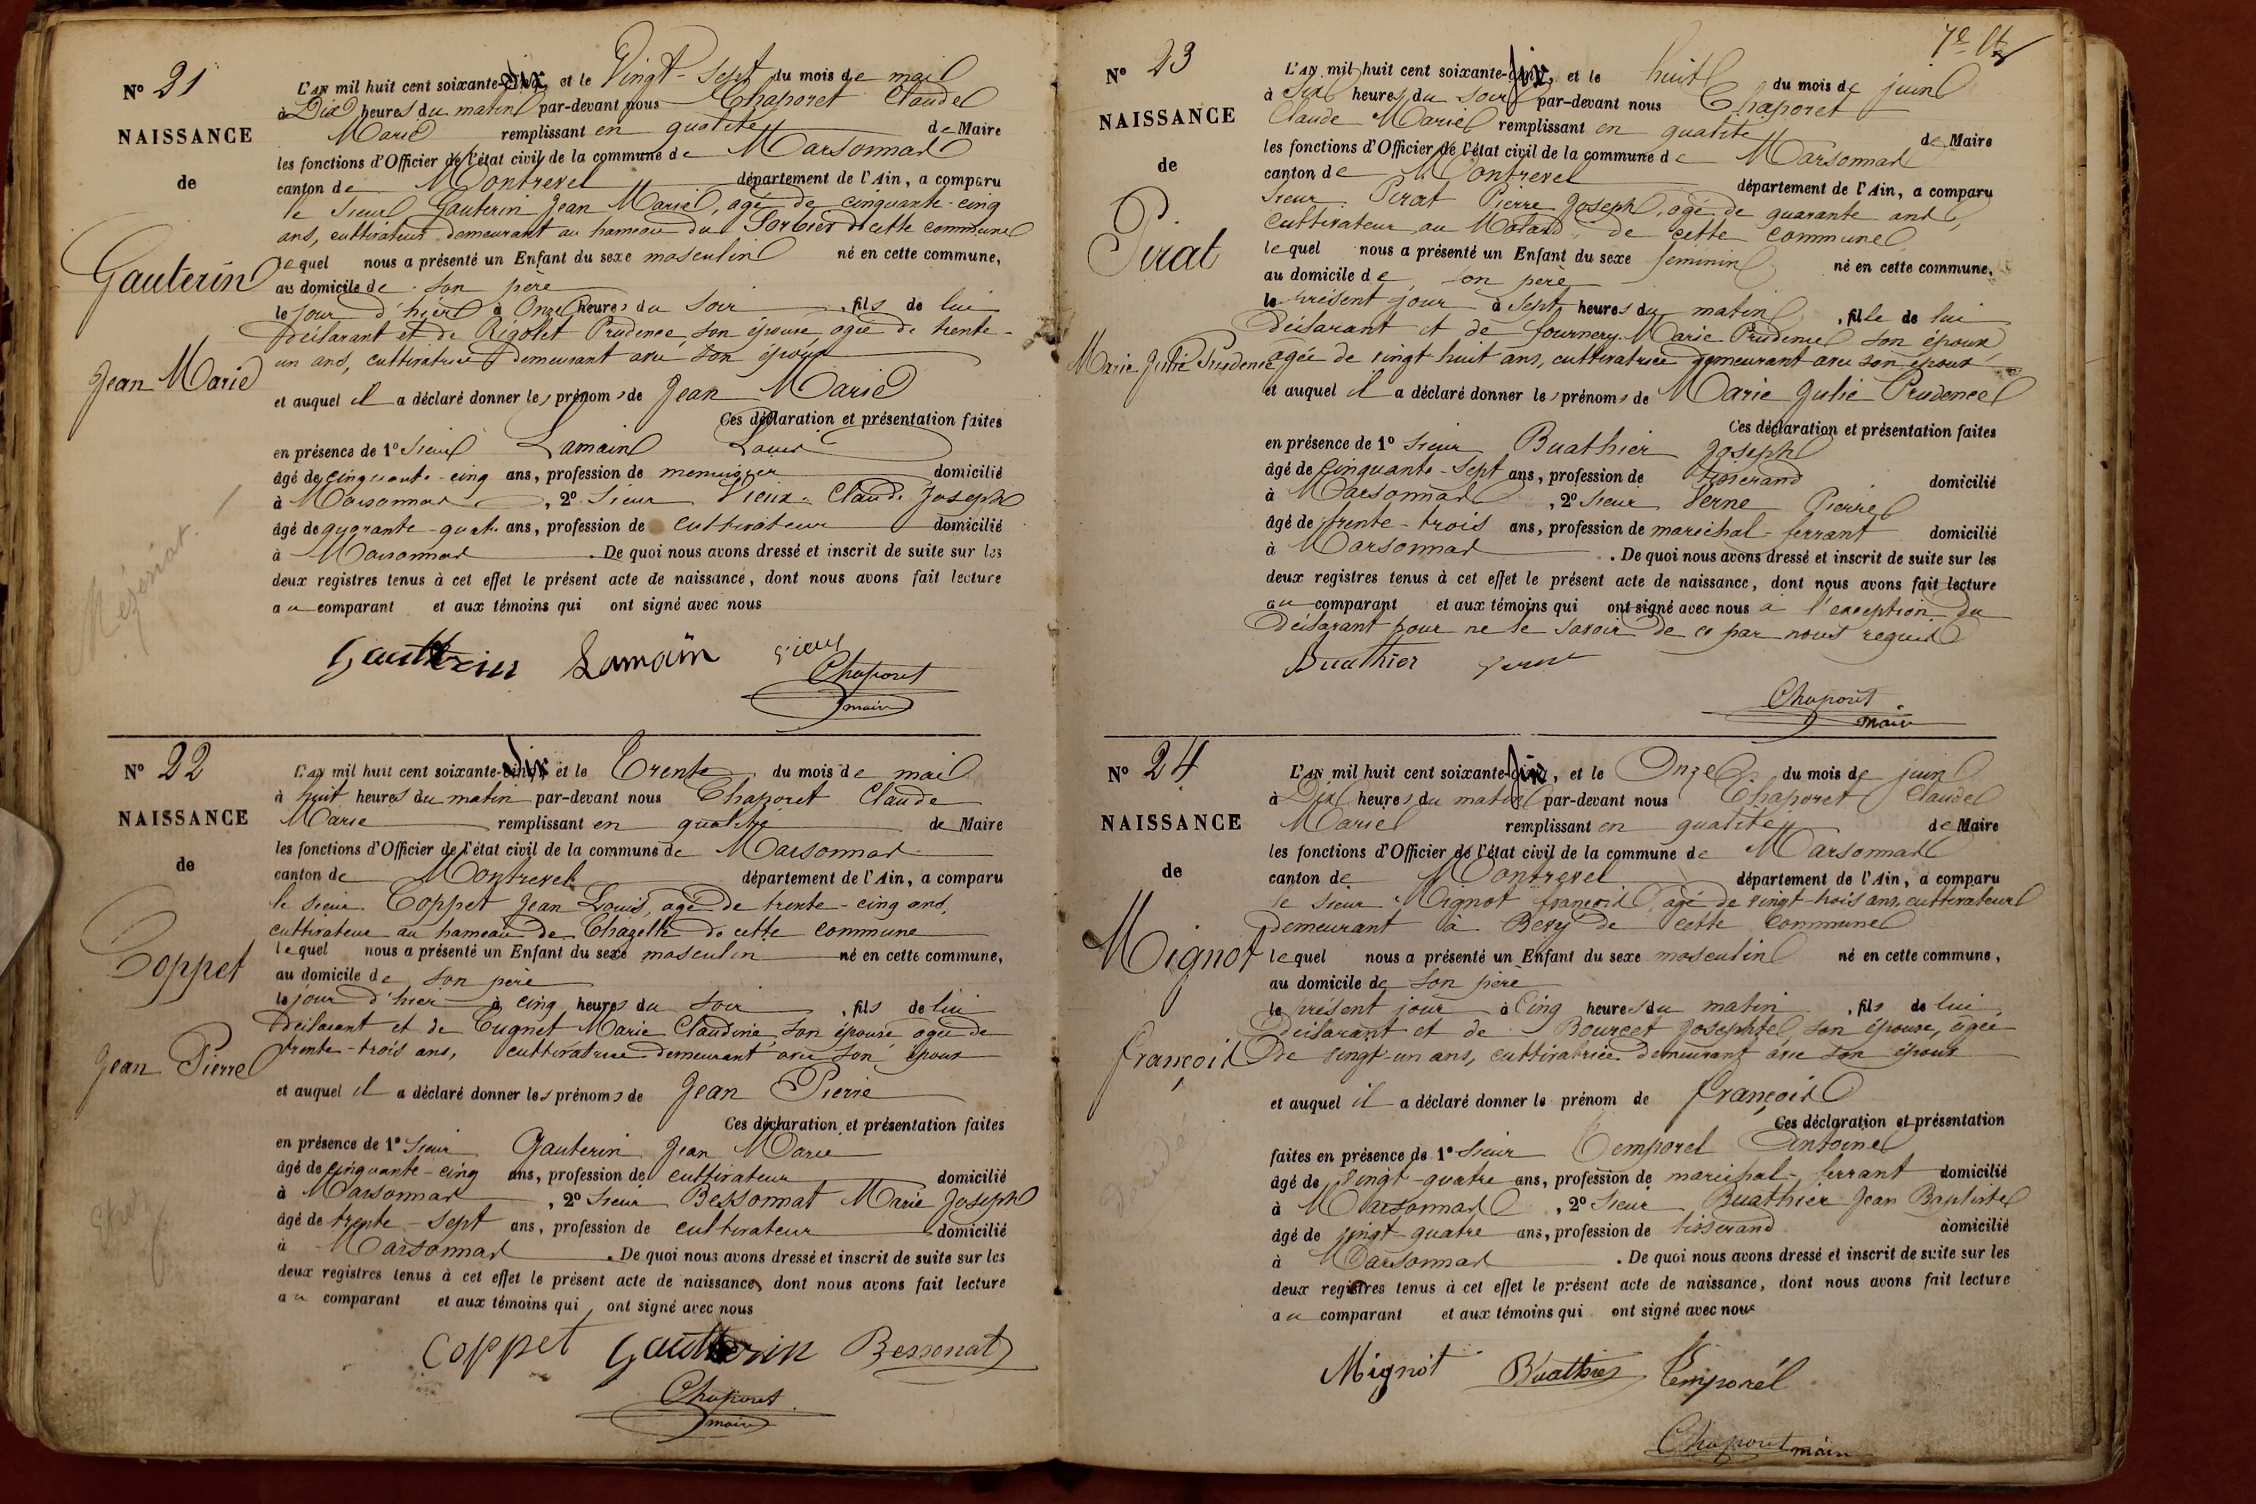 N° 21
NAISSANCE
de
Gauterin
Jean Marie
L'an mil huit cent soixante-dix, et le Vingt-Sept du mois de mai
à Dix heures du matin par-devant nous Chaporet Claude
Marie remplissant en qualité de Maire
les fonctions d'Officier de l'état civil de la commune de Marsonnas
canton de Montrevel département de l'Ain, a comparu
le Sieur Gauterin Jean Marie, agé de cinquante-cinq
ans, cultivateur demeurant au hameau du Sorbier de cette commune
lequel nous a présenté un Enfant du sexe masculin né en cette commune,
au domicile de son père
le jour d'hier à Onze heures du soir, fils de lui
déclarant et de Rigolet Prudence, son épouse, agée de trente-
un ans, cultivatrice demeurant avec son époux
et auquel il a déclaré donner les prénoms de Jean Marie
Ces déclaration et présentation faites
en présence de 1° Sieur Lamain Louis
âgé de cinquante-cinq ans, profession de menuisier domicilié
à Marsonnas, 2° Sieur Vieux Claude Joseph
âgé de quarante-quatre ans, profession de cultivateur domicilié
à Marsonnas. De quoi nous avons dressé et inscrit de suite sur les
deux registres tenus à cet effet le présent acte de naissance, dont nous avons fait lecture
au comparant et aux témoins qui ont signé avec nous
Gautterin Lamain Vieux
Chaporet
maire
N° 22
NAISSANCE
de
Coppet
Jean Pierre
L'an mil huit cent soixante-dix et le Trente du mois de mai
à huit heures du matin par-devant nous Chaporet Claude
Marie remplissant en qualité de Maire
les fonctions d'Officier de l'état civil de la commune de Marsonnas
canton de Montrevel département de l'Ain, a comparu
le sieur Coppet Jean Louis, agé de trente-cinq ans,
cultivateur au hameau de Chazelle de cette commune
lequel nous a présenté un Enfant du sexe masculin né en cette commune,
au domicile de son père
le jour d'hier à cinq heures du soir, fils de lui
déclarant et de Tugnet Marie Claudine, son épouse, agée de
trente-trois ans, cultivatrice demeurant avec son époux
et auquel il a déclaré donner les prénoms de Jean Pierre
Ces déclaration et présentation faites
en présence de 1° Sieur Gauterin Jean Marie
âgé de cinquante-cinq ans, profession de cultivateur domicilié
à Marsonnas, 2° Sieur Bessonnat Marie Joseph
âgé de trente-sept ans, profession de cultivateur domicilié
à Marsonnas. De quoi nous avons dressé et inscrit de suite sur les
deux registres tenus à cet effet le présent acte de naissance, dont nous avons fait lecture
au comparant et aux témoins qui ont signé avec nous
Coppet Gautterin Bessonat
Chaporet
maire
N° 23
NAISSANCE
de
Pirat
Marie Julie Prudence
L'an mil huit cent soixante-dix, et le huit du mois de juin
à Six heures du soir par-devant nous Chaporet
Claude Marie remplissant en qualité de Maire
les fonctions d'Officier de l'état civil de la commune de Marsonnas
canton de Montrevel département de l'Ain, a comparu
Sieur Pirat Pierre Joseph, agé de quarante ans,
cultivateur au Matard de cette commune
lequel nous a présenté un Enfant du sexe feminin né en cette commune,
au domicile de son père
le présent jour à Sept heures du matin, fille de lui
déclarant et de fournery Marie Prudence son épouse
agée de vingt huit ans, cultivatrice demeurant avec son époux
et auquel il a déclaré donner les prénoms de Marie Julie Prudence
Ces déclaration et présentation faites
en présence de 1° Sieur Buathier Joseph
âgé de cinquante-sept ans, profession de tisserand domicilié
à Marsonnas, 2° Sieur Verne Pierre
âgé de trente-trois ans, profession de marechal-ferrant domicilié
à Marsonnas. De quoi nous avons dressé et inscrit de suite sur les
deux registres tenus à cet effet le présent acte de naissance, dont nous avons fait lecture
au comparant et aux témoins qui ont signé avec nous à l'exception du
déclarant pour ne le savoir de ce par nous requis
Buathier Verne
Chaporet
maire
N° 24
NAISSANCE
de
Mignot
françois
L'an mil huit cent soixante-dix, et le Onze du mois de juin
à Dix heures du matin par-devant nous Chaporet Claude
Marie remplissant en qualité de Maire
les fonctions d'Officier de l'état civil de la commune de Marsonnas
canton de Montrevel département de l'Ain, a comparu
le sieur Mignot françois, agé de vingt-trois ans, cultivateur
demeurant à Bevy de cette commune
lequel nous a présenté un Enfant du sexe masculin né en cette commune,
au domicile de son père
le présent jour à Cinq heures du matin, fils de lui
déclarant et de Bourcet Josephte, son épouse, agée
de vingt-un ans, cultivatrice demeurant avec son époux
et auquel il a déclaré donner le prénom de françois
Ces déclaration et présentation
faites en présence de 1° Sieur Temporel Antoine
âgé de vingt-quatre ans, profession de marechal-ferrant domicilié
à Marsonnas, 2° Sieur Buathier Jean Baptiste
âgé de vingt-quatre ans, profession de tisserand domicilié
à Marsonnas. De quoi nous avons dressé et inscrit de suite sur les
deux registres tenus à cet effet le présent acte de naissance, dont nous avons fait lecture
au comparant et aux témoins qui ont signé avec nous
Mignot Buathier Temporel
Chaporet maire